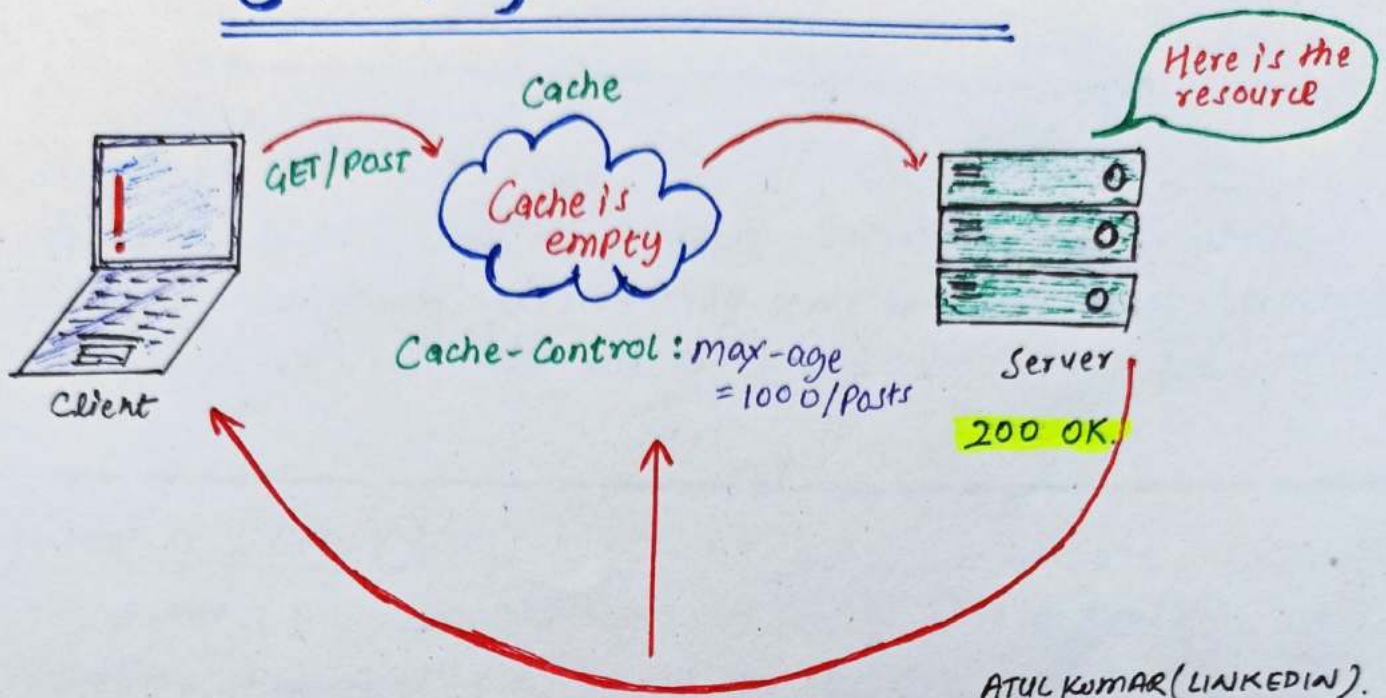 Cache
Here is the
resource
GET/POST
Cache is
empty
Cache-Control: max-age
= 1000/Posts
Client
Server
200 OK.
ATUL KUMAR (LINKEDIN).